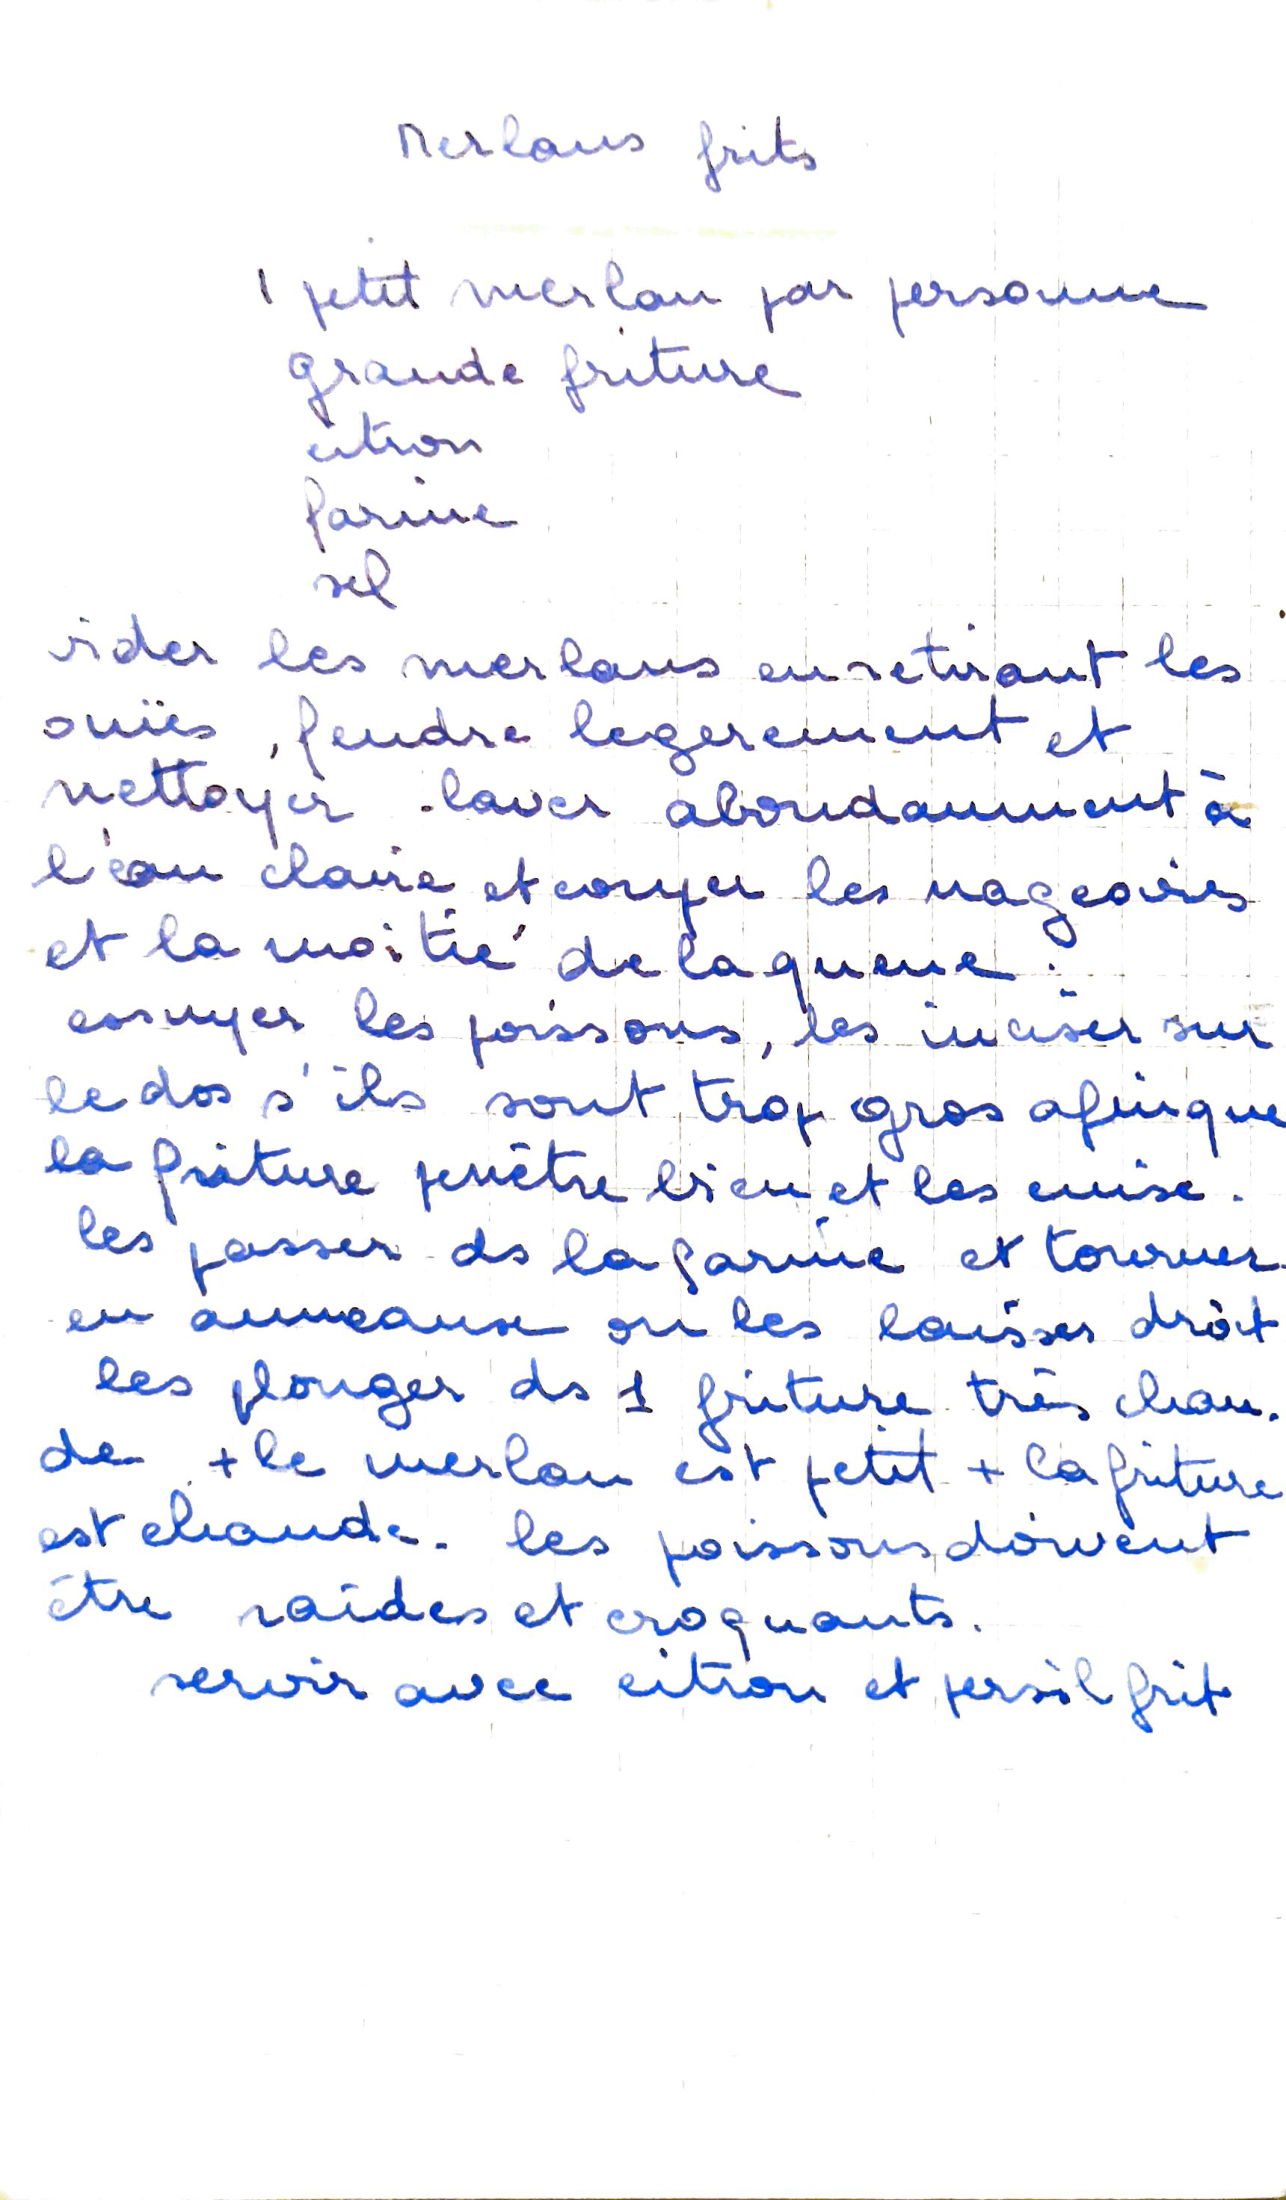 Merlans frits
1 petit merlan par personne
grande friture
citron
farine
sel
vider les merlans en retirant les
ouïes, fendre legerement et
nettoyer. laver abondamment à
l'eau claire et couper les nageoires
et la moitié de la queue.
essuyer les poissons, les inciser sur
le dos s'ils sont trop gros afin que
la friture penètre bien et les cuise.
les passer ds la farine et tourner
en anneaux ou les laisser droit
les plonger ds 1 friture très chau-
de + le merlan est petit + la friture
est chaude. les poissons doivent
être raides et croquants.
servir avec citron et persil frit